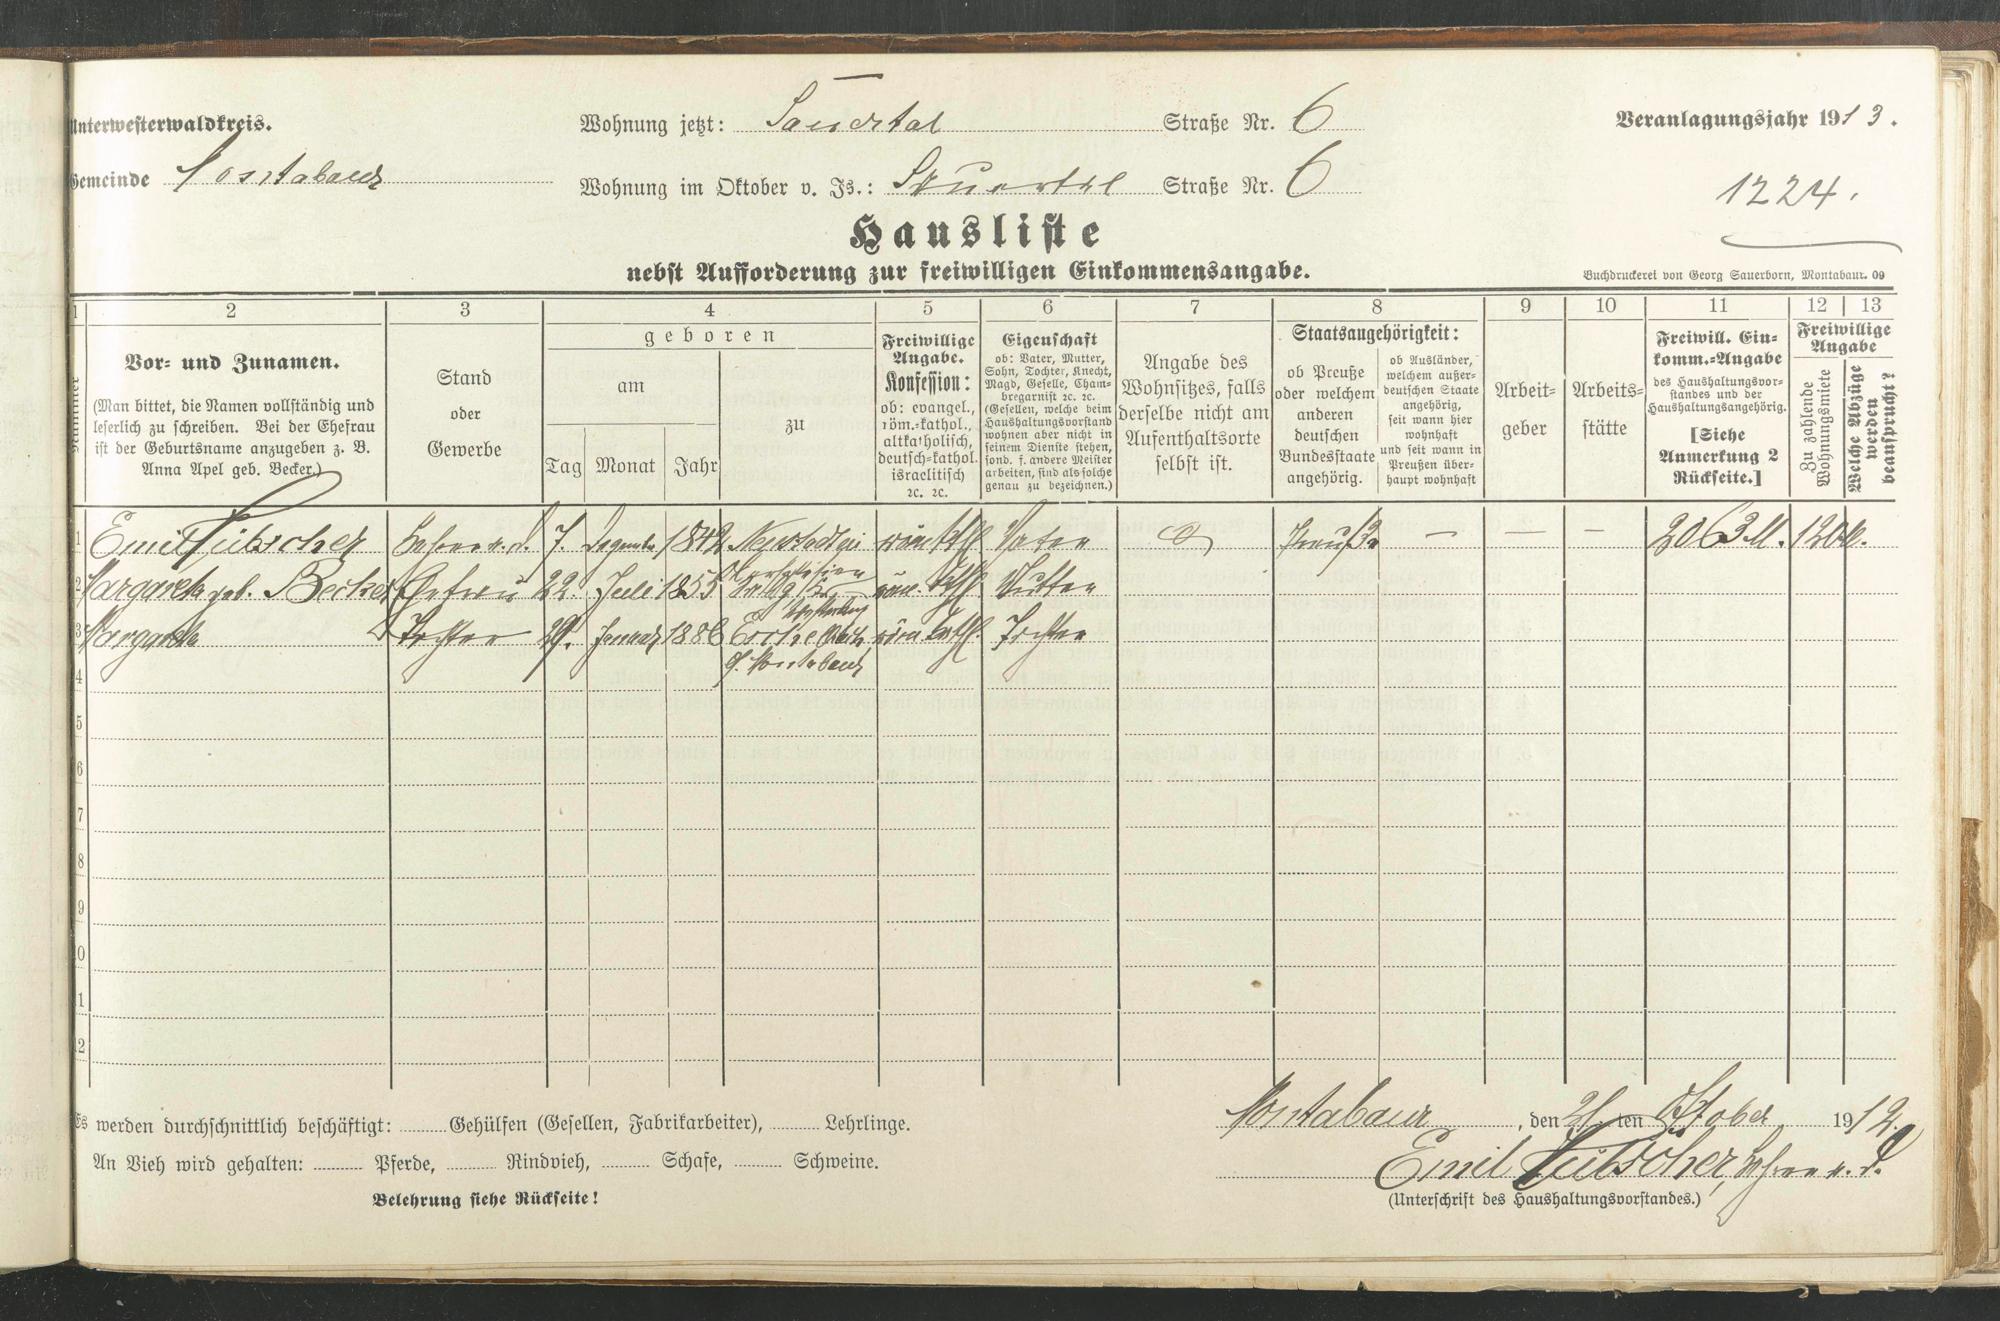 Unterwesterwaldkreis.
Wohnung jetzt: Sauertal Straße Nr. 6
Veranlagungsjahr 1913.
Gemeinde Montabaur
Wohnung im Oktober v. Js.: Sauertal Straße Nr. 6
1224.
Hausliste
nebst Aufforderung zur freiwilligen Einkommensangabe.
Buchdruckerei von Georg Sauerborn, Montabaur. 09
1 2 3 4 5 6 7 8 9 10 11 12 13
Nummer
Vor- und Zunamen.
(Man bittet, die Namen vollständig und
leserlich zu schreiben. Bei der Ehefrau
ist der Geburtsname anzugeben z. B.
Anna Apel geb. Becker.)
Stand
oder
Gewerbe
geboren
am
zu
Tag Monat Jahr
Freiwillige
Angabe.
Konfession:
ob: evangel.,
röm.-kathol.,
altkatholisch,
deutsch-kathol.
israelitisch
ꝛc. ꝛc.
Eigenschaft
ob: Vater, Mutter,
Sohn, Tochter, Knecht,
Magd, Geselle, Cham-
bregarnist ꝛc. ꝛc.
(Gesellen, welche beim
Haushaltungsvorstand
wohnen aber nicht in
seinem Dienste stehen,
sond. f. andere Meister
arbeiten, sind als solche
genau zu bezeichnen.)
Angabe des
Wohnsitzes, falls
derselbe nicht am
Aufenthaltsorte
selbst ist.
Staatsangehörigkeit:
ob Preuße
oder welchem
anderen
deutschen
Bundesstaate
angehörig.
ob Ausländer,
welchem außer-
deutschen Staate
angehörig,
seit wann hier
wohnhaft
und seit wann in
Preußen über-
haupt wohnhaft
Arbeit-
geber
Arbeits-
stätte
Freiwill. Ein-
komm.-Angabe
des Haushaltungsvor-
standes und der
Haushaltungsangehörig.
[Siehe
Anmerkung 2
Rückseite.]
Freiwillige
Angabe
Zu zahlende
Wohnungsmiete
Welche Abzüge
werden
beansprucht?
1 Emil Lehrer a. D. 7. Dezember 1842 röm. kath. Vater Preuße — — — 2063 M. 120 M.
2 Margareta geb. Becker Ehefrau 22. Juli 1855 röm. kath. Mutter
3 Margareta Tochter 29. Januar 1886 röm. kath. Tochter
Montabaur
4
5
6
7
8
9
10
11
12
Es werden durchschnittlich beschäftigt: Gehülfen (Gesellen, Fabrikarbeiter), Lehrlinge.
Montabaur, den 21 ten Oktober 1912.
An Vieh wird gehalten: Pferde, Rindvieh, Schafe, Schweine.
Emil Lehrer a. D.
Belehrung siehe Rückseite!
(Unterschrift des Haushaltungsvorstandes.)